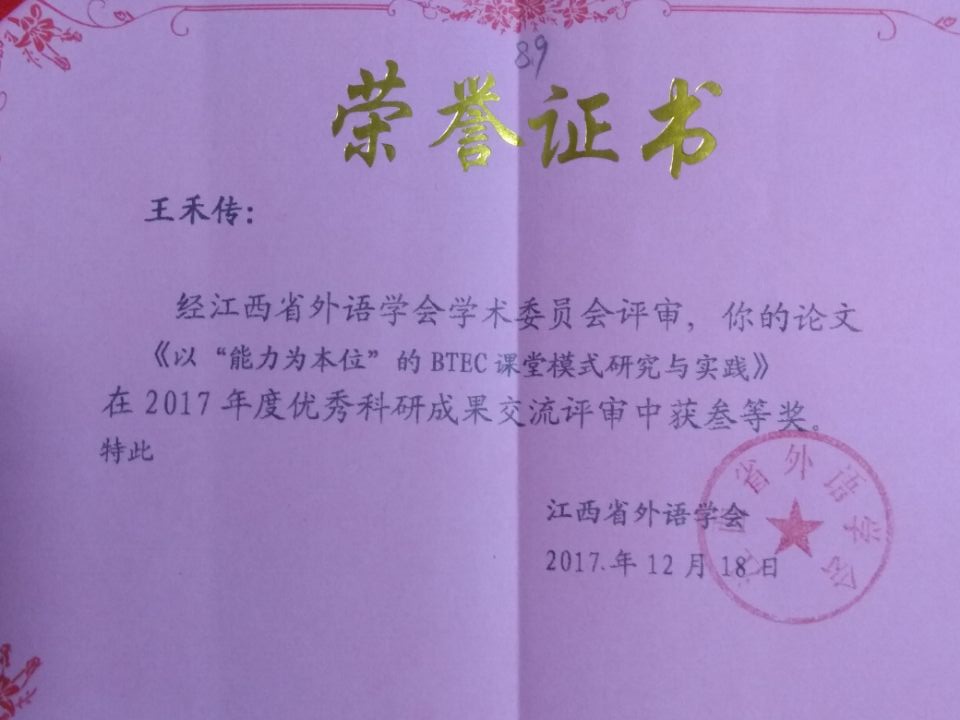 89
荣誉证书
王禾传：
经江西省外语学会学术委员会评审，你的论文
《以“能力为本位”的 BTEC 课堂模式研究与实践》
在 2017 年度优秀科研成果交流评审中获叁等奖。
特此
江西省外语学会
2017.年 12 月 18 日
江西省外语学会